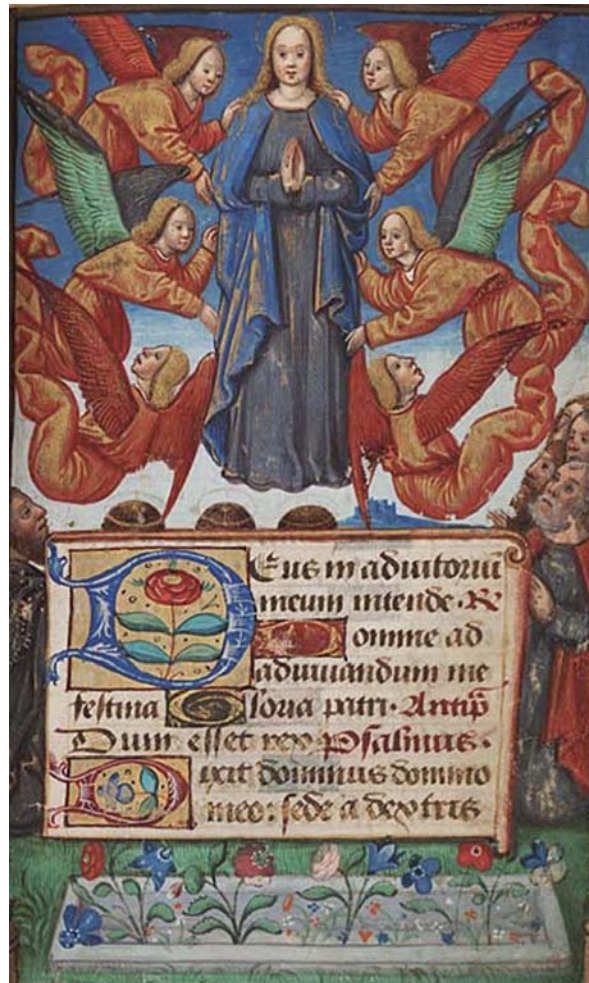 Deus in adiutoriū
meum intende. R
Domine ad
adiuuandum me
festina Gloria patri. Antiph
Dum esset rex Psalmus.
Dixit dominus domino
meo: sede a dextris